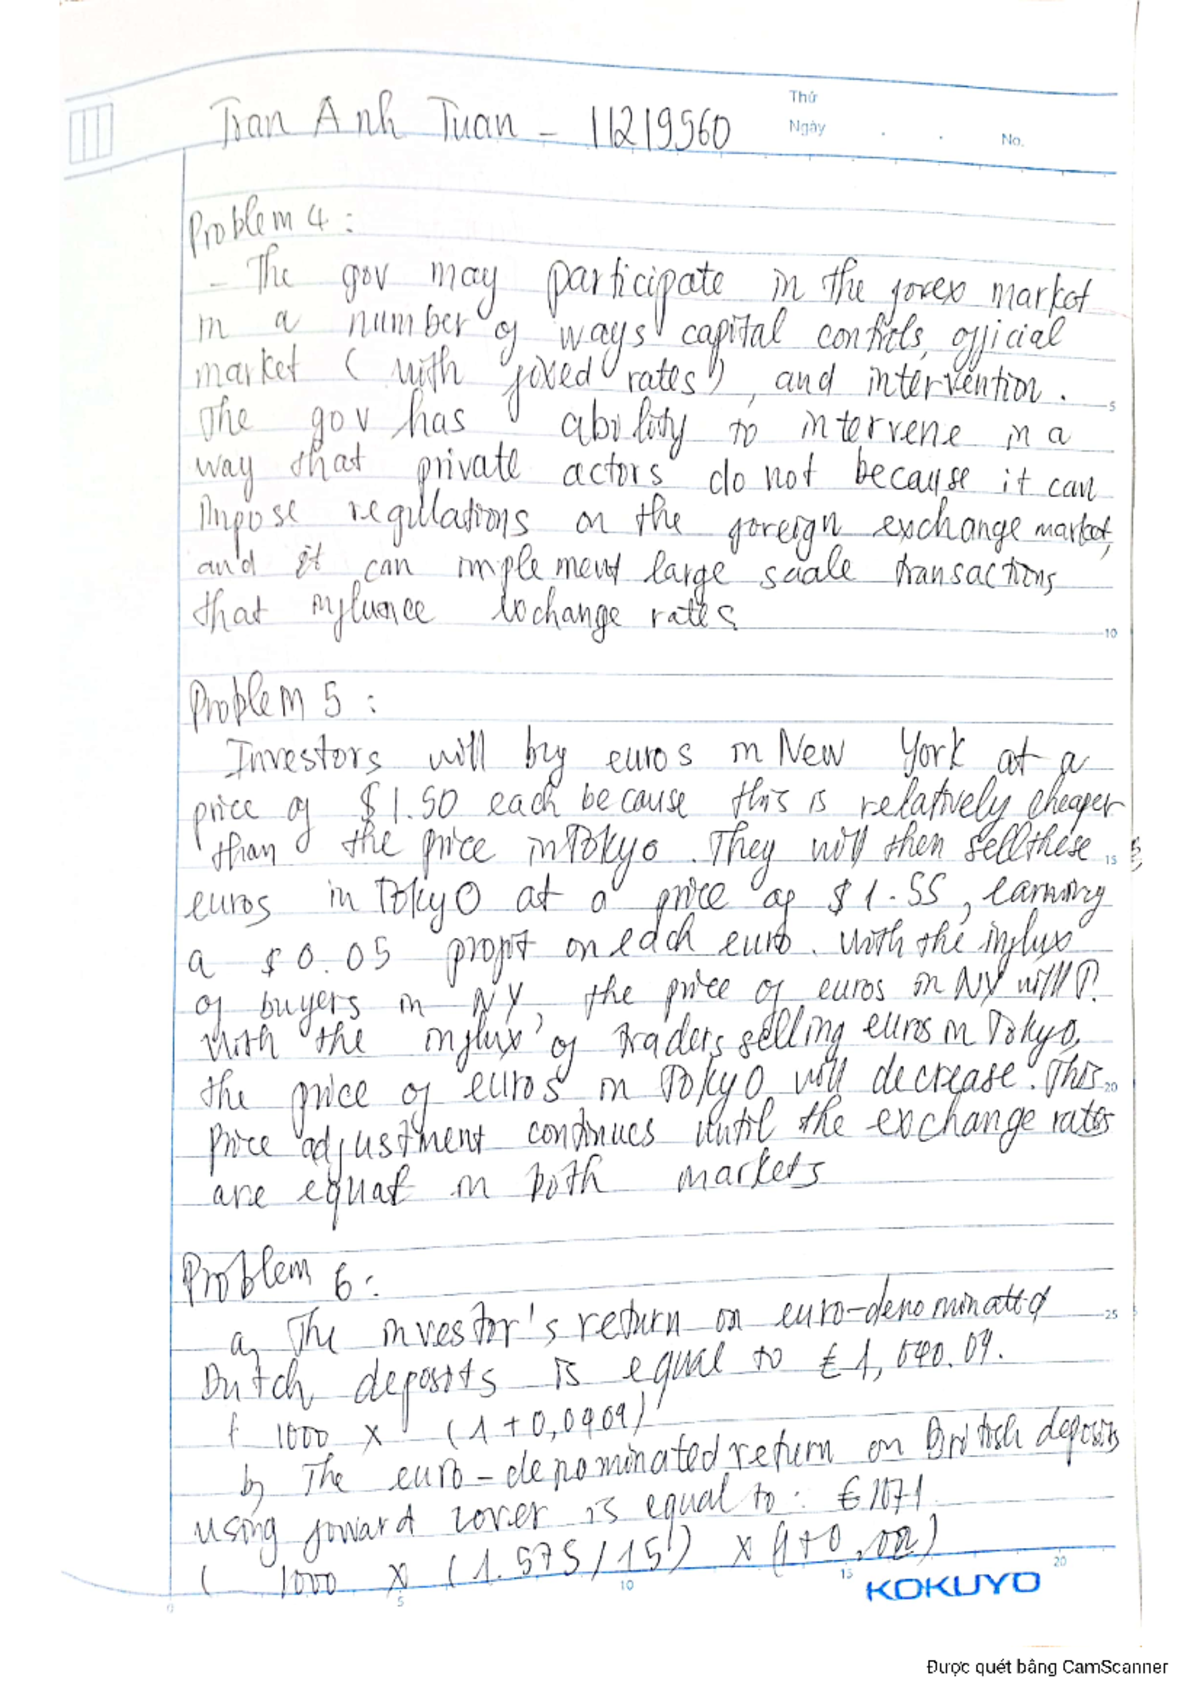 Thứ
Tran Anh Tuan - 11219560
Ngày
No.
Problem 4:
- The gov may participate in the forex market
in a number of ways capital contrls, official
market (with fixed rates), and intervention.
5
The gov has ability to intervene in a
way that private actors do not because it can
impose regulations on the foreign exchange market,
and it can implement large scale transactions
that influence exchange rates
10
Problem 5:
Investors will buy euros in New York at a
price of $1.50 each because this is relatively cheaper
than the price in Tokyo. They will then sell these
15
euros in Tokyo at a price of $1.55, earning
a $0.05 profit on each euro. With the influx
of buyers in NY, the price of euros in NY will ↑.
With the influx of traders selling euros in Tokyo,
the price of euros in Tokyo will decrease. This
20
price adjustment continues until the exchange rates
are equal in both markets
Problem 6:
a, The investor's return on euro-denominated
25
Dutch deposits is equal to
1000 x (1+0,0409)
b, The euro-denominated return on British deposits
using forward cover is equal to: €1071
( 1000 x (1.575/15) x
5
10
15
20
KOKUYO
Được quét bằng CamScanner